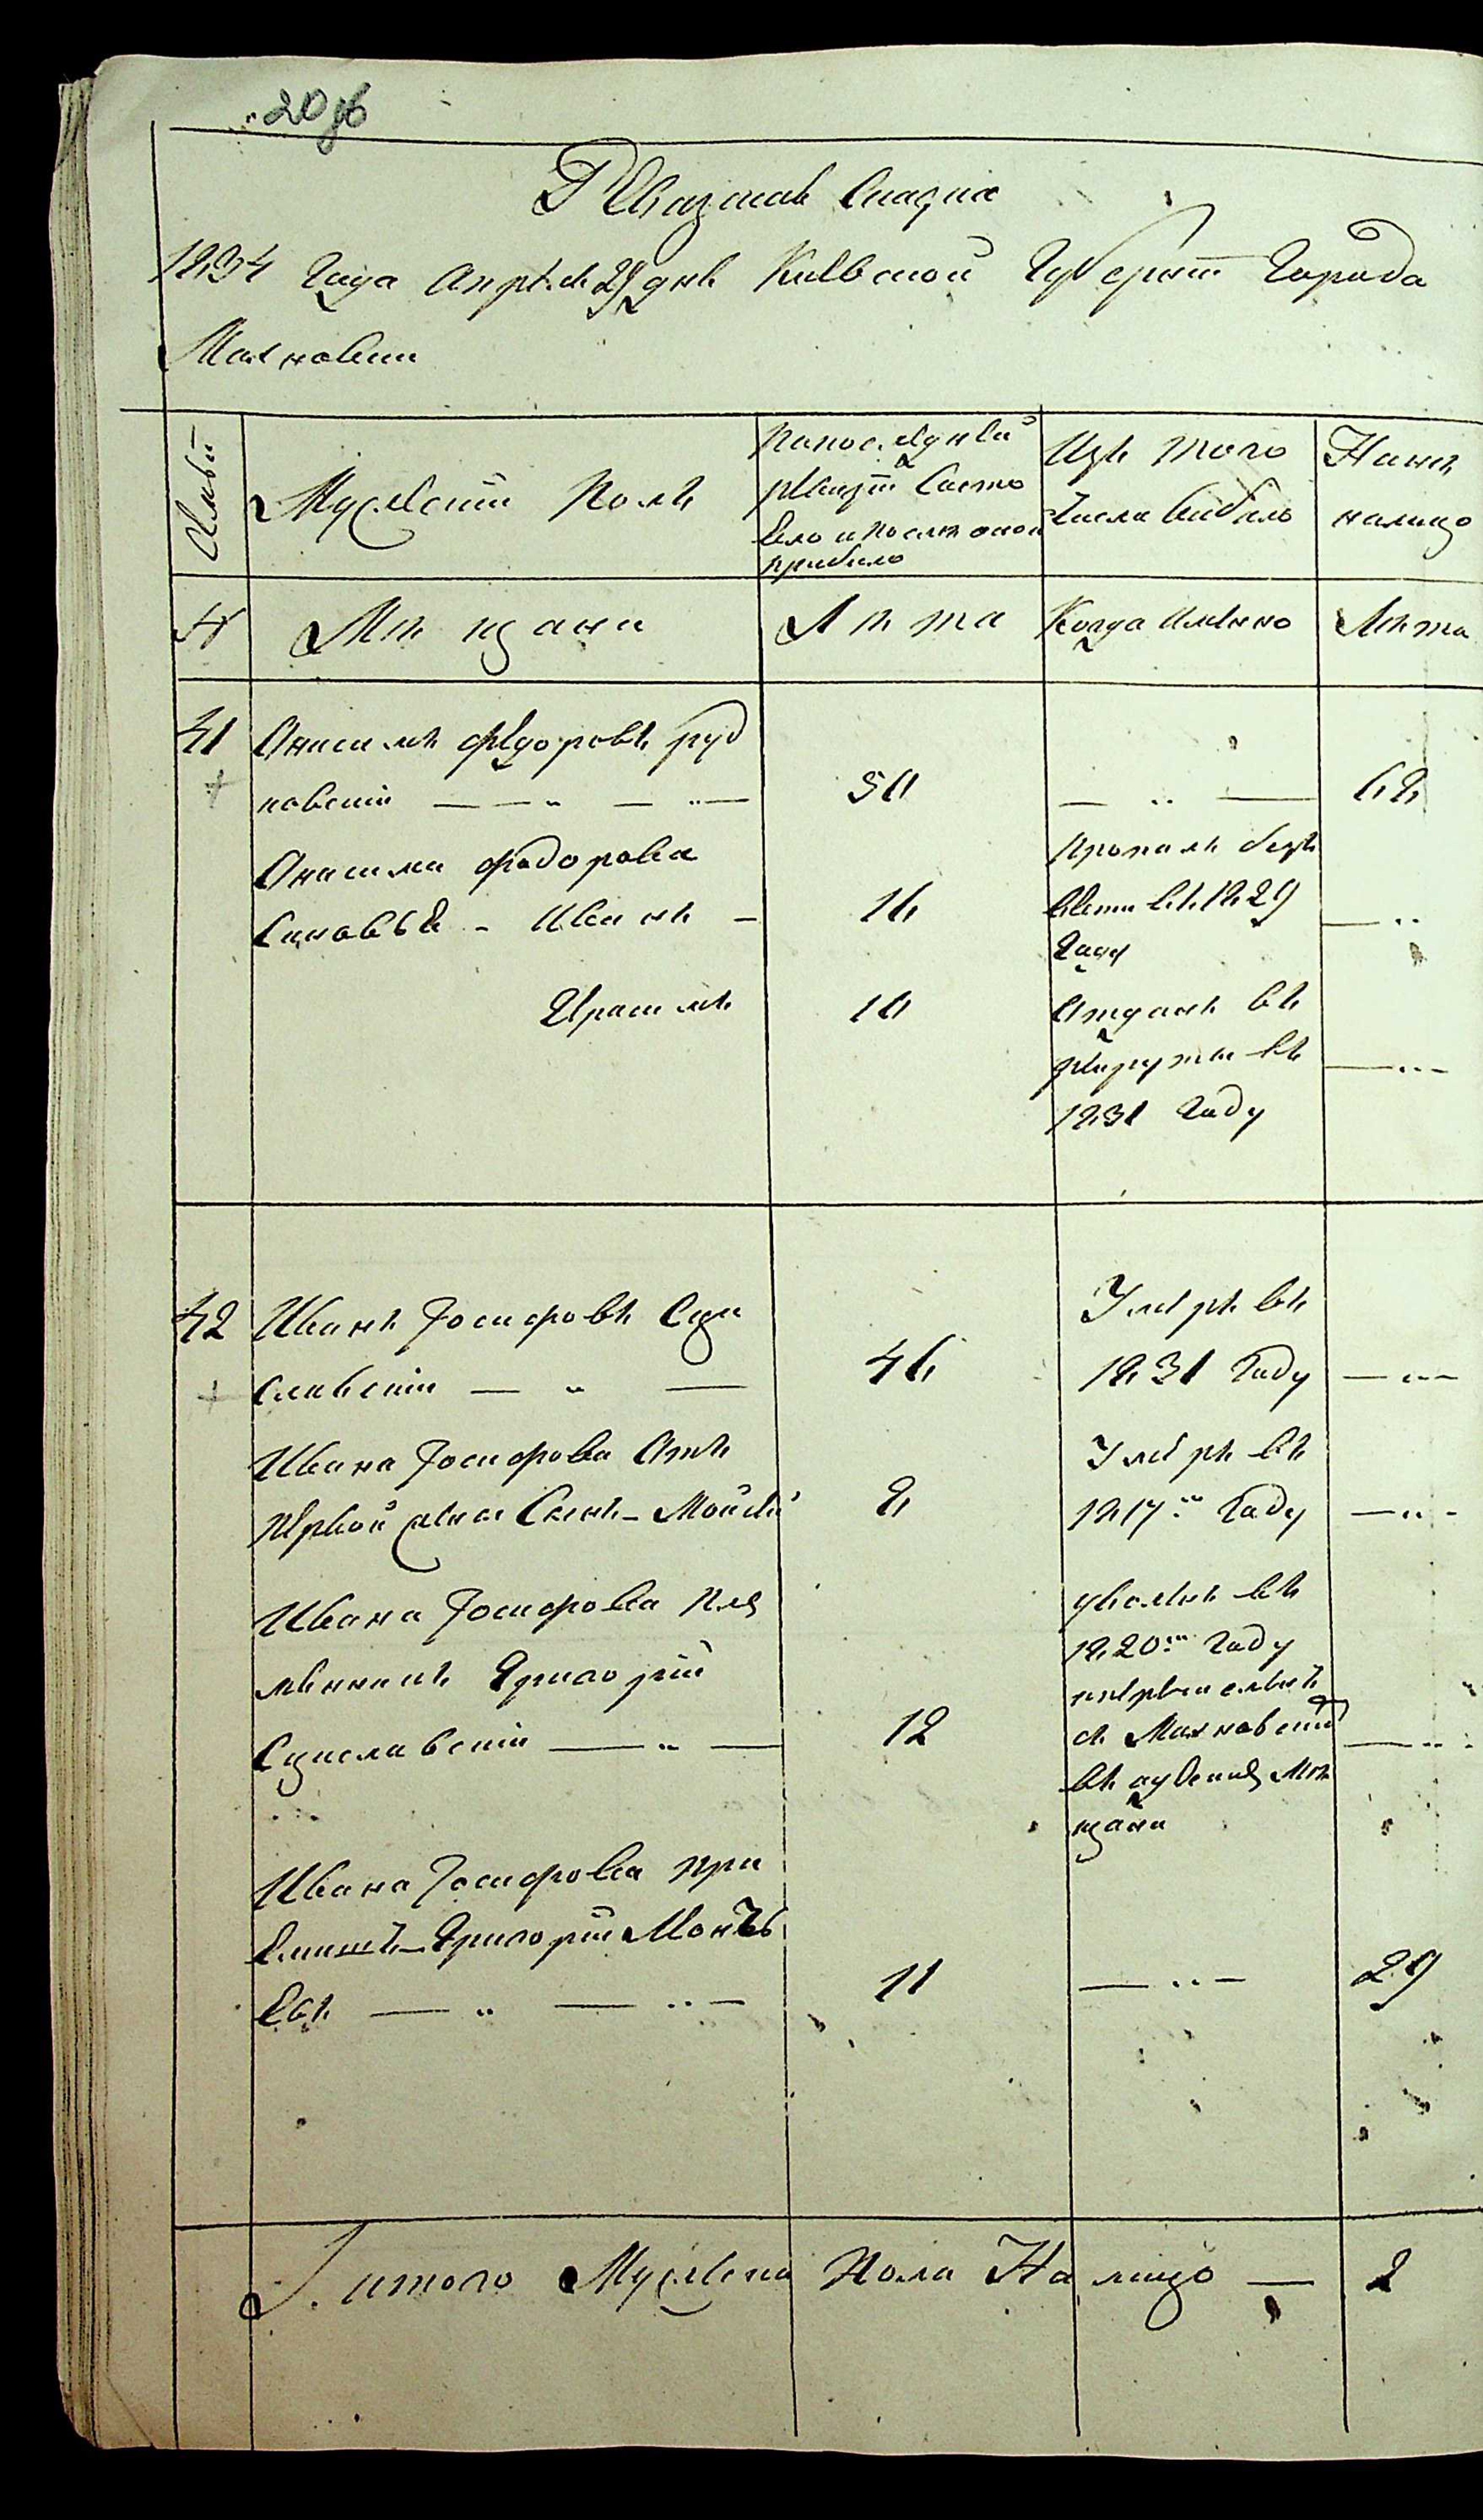 20 об
Ревизская Сказка
1834 Года Апреля 28 дня Киевской Губернии Города
Махновки
Семьи
Мужеский Полъ
По последней
ревизіи Состо
Ело и после оной
прибыло
Изъ того
Числа выбыло
Ныне
налицо
№
Мѣщани
Лѣта
Когда именно
Лѣта
41
Анисимъ Федоровъ Руд
ковскій — „ — „ —
50
— „ —
68
Анисима Федорова
Сыновье - Иванъ -
16
пропалъ безъ
вести въ 1829
Году
— „
Герасимъ
10
Отданъ въ
рекруты въ
1831 Году
— „ -
42
Иванъ Іосифовъ Сци
славскій — „ —
46
Умеръ въ
1831 Году
— „ -
Ивана Іосифова Отъ
первой жены Сынъ - Мойсей
8
Умеръ въ
1817м Году
— „ -
Ивана Іосифова пле
менникъ Григорій
Сциславскій — „ —
12
уволенъ въ
1820м Году
и перечисленъ
съ Махновскихъ
мѣ
щани
— „ -
Ивана Іосифова при
Емышъ - Григорій
Евъ — „ — „ -
11
— „ -
29
И итого Мужеска Пола На лицо —
2